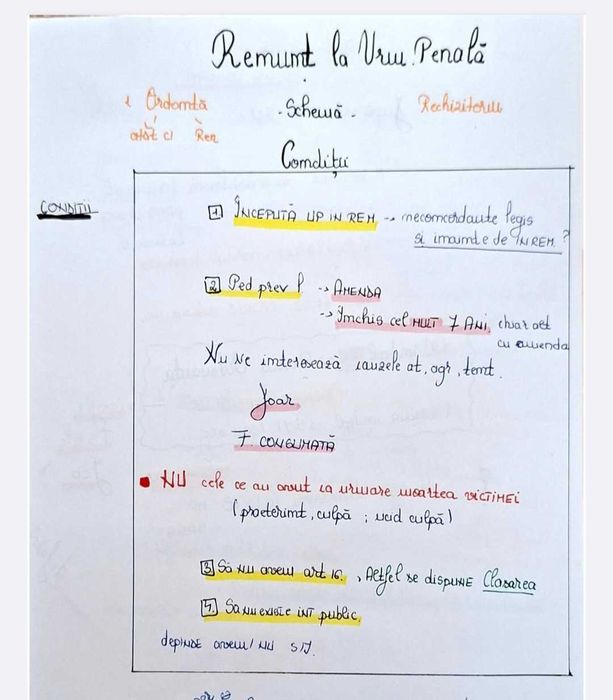 Renunt la Urm. Penală
1 Ordonntă
- Schemă -
Rechizitoriu
atât cl Ren
Condiții
CONDITII
1 ÎNCEPUTĂ UP IN REM → neconcordante legis
si inainte de IN REM ?
2. Ped prev l → AMENDA
→ Inchis cel MULT 7 ANI, chiar alt
cu amenda
Nu ne interesează cauzele at, agr, tent.
Joar
F. CONSUMATĂ
• NU cele ce au avut ca urmare moartea VICTIMEI
(praeterint, culpă ; ucid culpă)
3 Să NU avem art 16. , Altfel se dispune Clasarea
4. Sa NU EXISTE INT public.
depinde avem/NU S/J.